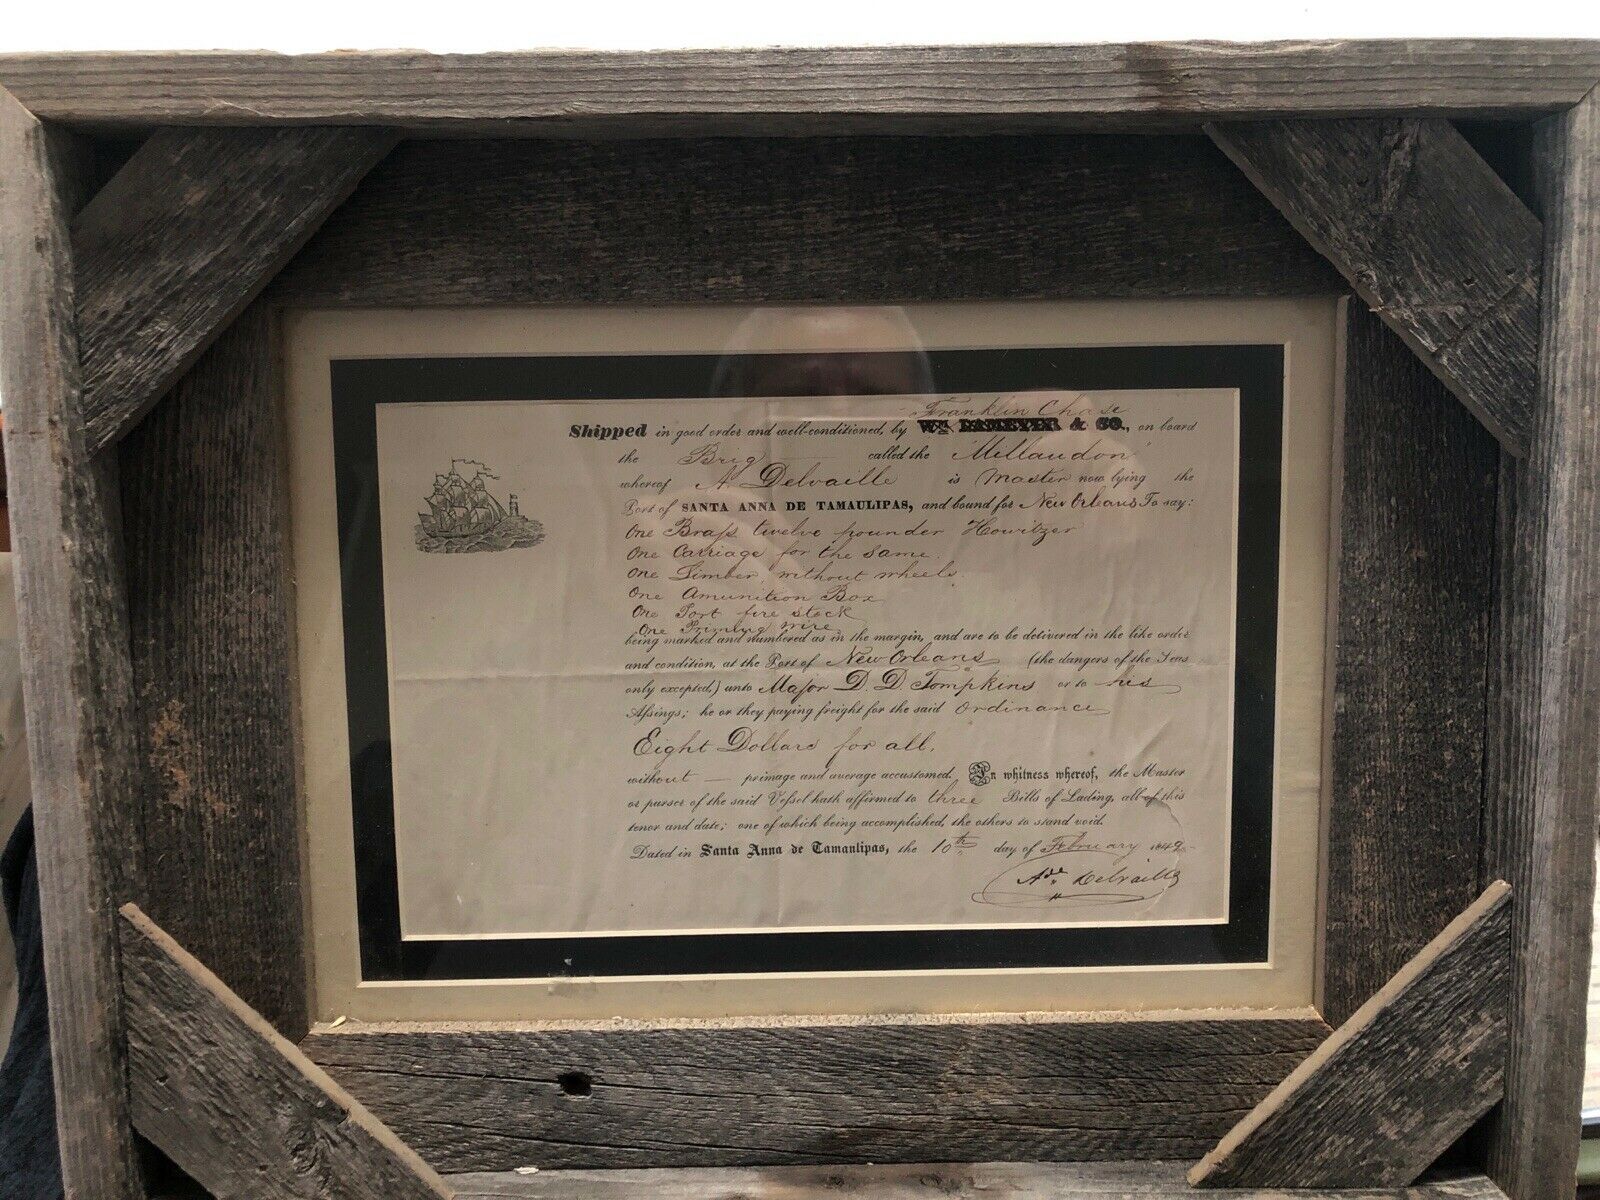 Franklin Chase
Shipped in good order and well-conditioned, by & CO., on board
the Brig called the Millaudon
whereof A Delvaille is Master now lying the
Port of SANTA ANNA DE TAMAULIPAS, and bound for New Orleans To say:
One Brass twelve pounder Howitzer
One Carriage for the same.
One Limber, without wheels.
One Amunition Box
One Port fire stock
One Priming wire
being marked and numbered as in the margin, and are to be delivered in the like order
and condition, at the Port of New Orleans (the dangers of the Seas
only excepted,) unto Major D. D. Tompkins or to his
Assings; he or they paying freight for the said Ordinance
Eight Dollars for all.
without — primage and average accustomed. In whitness whereof, the Master
or purser of the said Vessel hath affirmed to three Bills of Lading, all of this
tenor and date; one of which being accomplished, the others to stand void.
Dated in Santa Anna de Tamaulipas, the 10th day of February 1849
Ade. Delvaille